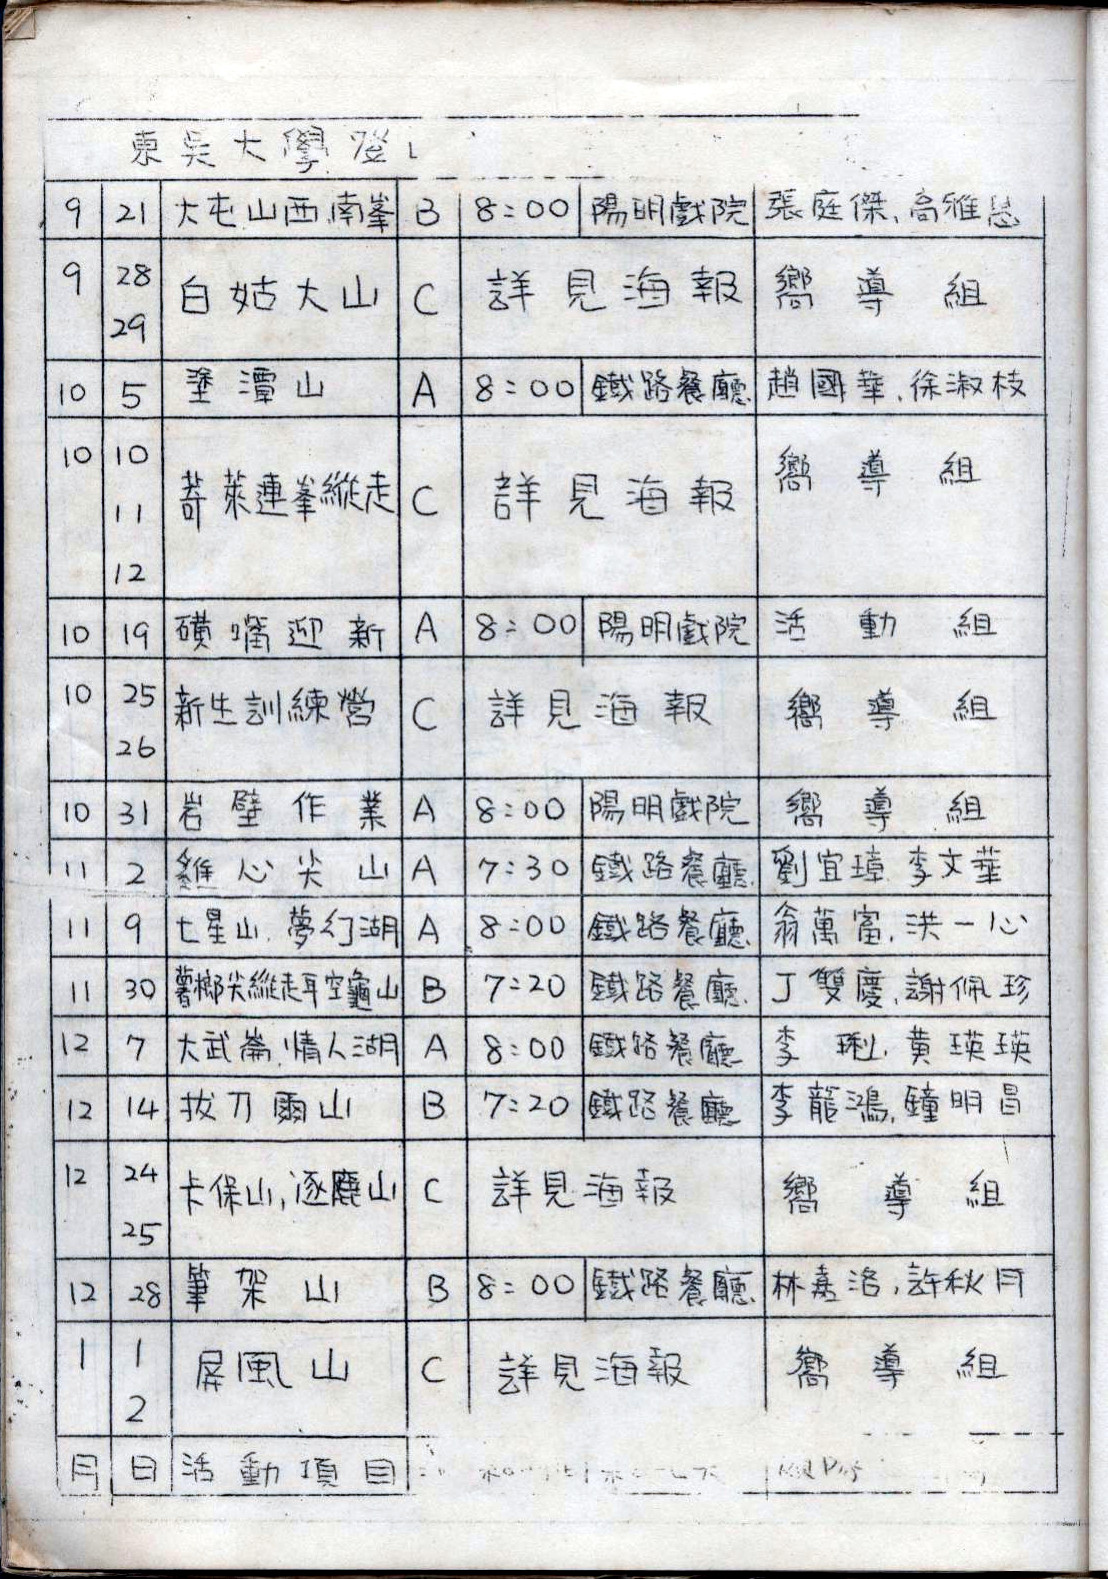 東吳大學登
9 21 大屯山西南峯 B 8:00 陽明戲院 張庭傑、高雅慧
9 28 29 白姑大山 C 詳見海報 嚮導組
10 5 塗潭山 A 8:00 鐵路餐廳 趙國華、徐淑枝
10 10 11 12 奇萊連峯縱走 C 詳見海報 嚮導組
10 19 磺嘴迎新 A 8:00 陽明戲院 活動組
10 25 26 新生訓練營 C 詳見海報 嚮導組
10 31 岩壁作業 A 8:00 陽明戲院 嚮導組
11 2 雞心尖山 A 7:30 鐵路餐廳 劉宜璋 李文華
11 9 七星山.夢幻湖 A 8:00 鐵路餐廳 翁萬富、洪一心
11 30 薯榔尖縱走耳空龜山 B 7:20 鐵路餐廳 丁雙慶、謝佩珍
12 7 大武崙.情人湖 A 8:00 鐵路餐廳 李琍、黃瑛瑛
12 14 拔刀爾山 B 7:20 鐵路餐廳 李龍鴻、鐘明昌
12 24 25 卡保山,逐鹿山 C 詳見海報 嚮導組
12 28 筆架山 B 8:00 鐵路餐廳 林嘉洛、許秋月
1 1 2 屏風山 C 詳見海報 嚮導組
月 日 活動項目